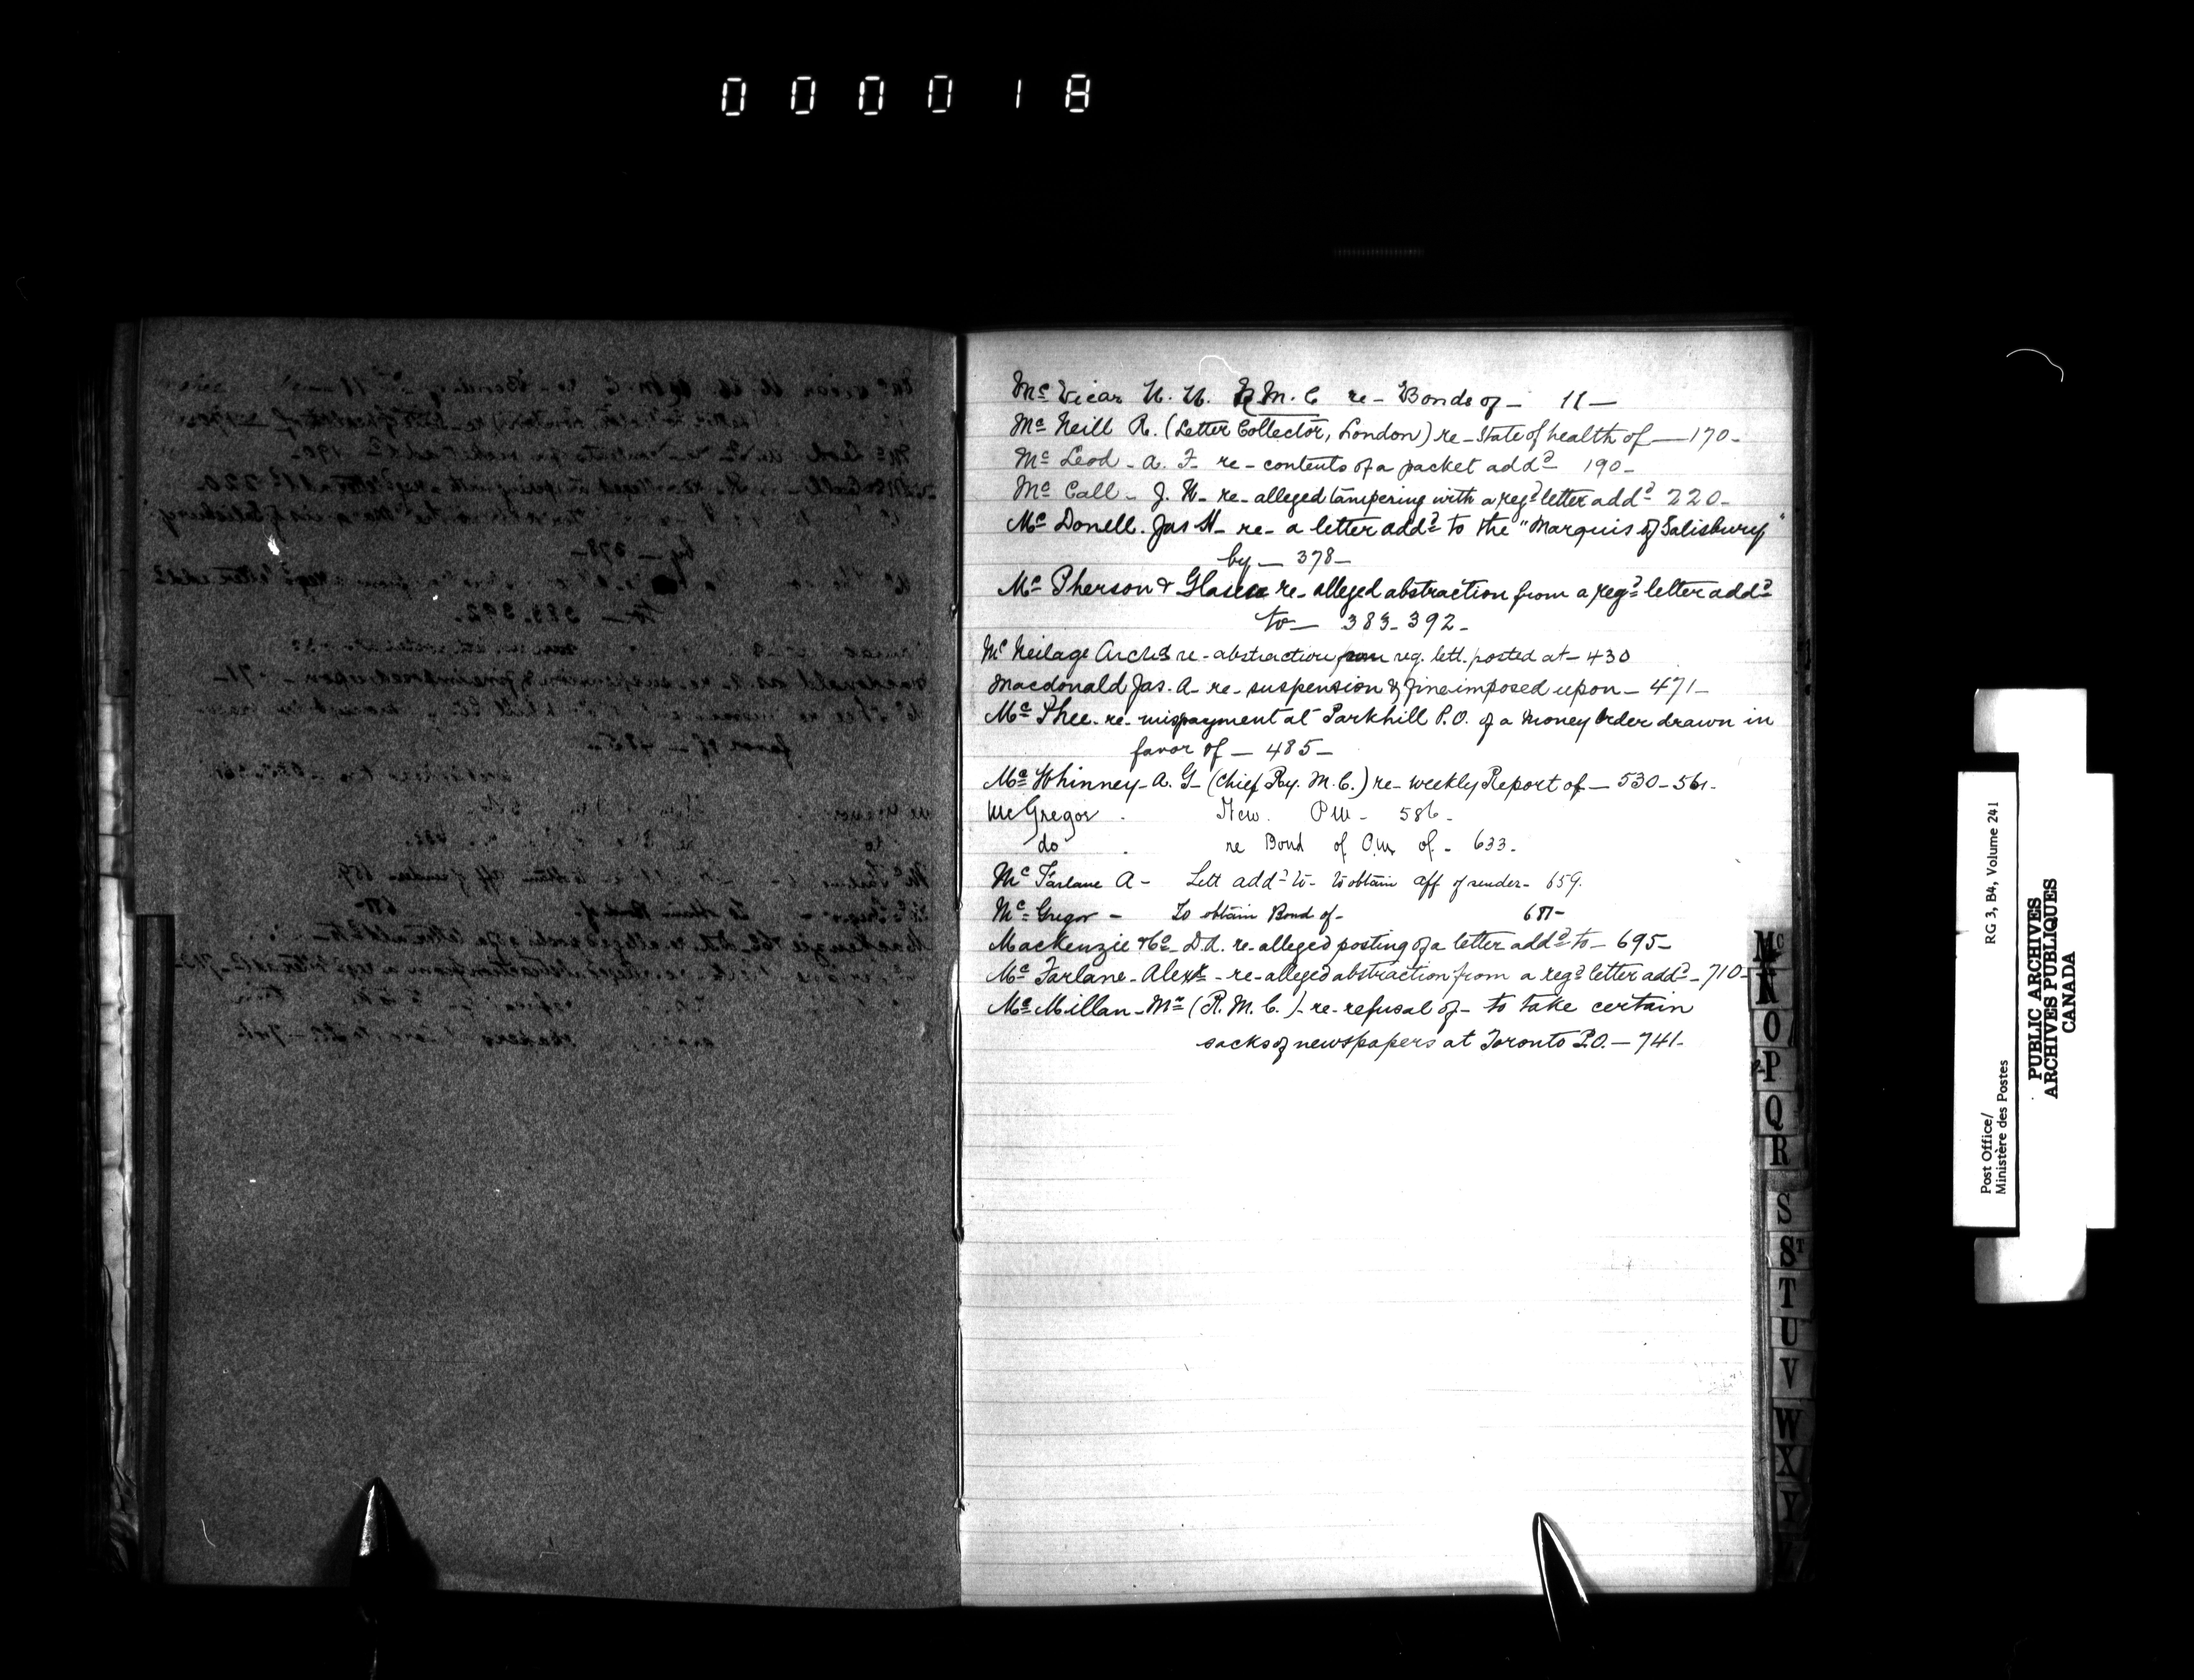 000018
Mc Vicar H. H. R. M. C re - Bonds of - 11 -
Mc Neill R. (Letter Collector, London) re - State of health of - 170 -
Mc Leod - A. F. re - contents of a packet addd 190 -
Mc Call - J. H - re - alleged tampering with a regd letter addd 220 -
Mc Donell. Jas H - re - a letter addd to the "Marquis of Salisbury"
by - 378 -
Mc Pherson & re - alleged abstraction from a regd letter addd
to - 383 - 392 -
Mc Neilage re - abstraction from reg. lett. posted at - 430
Macdonald Jas. A - re - suspension & fine imposed upon - 471 -
Mc Phee - re - mispayment at Parkhill P.O. of a Money Order drawn in
favor of - 485 -
Mc Whinney - A. G - (Chief Ry. M. C.) re - weekly Report of - 530 - 561 -
McGregor . New. PM - 586 -
do . re Bond of P.M. of - 633 -
Mc Farlane A - Lett addd to - to obtain aff of sender - 659.
Mc Gregor - To obtain Bond of - 687 -
Mackenzie & Co - D.A. re - alleged posting of a letter addd to - 695 -
Mc Farlane - Alexr - re - alleged abstraction from a regd letter addd - 710 -
Mc Millan - Mr (R. M. C.) - re - refusal of - to take certain
sacks of newspapers at Toronto P.O. - 741 -
Mc
N
O
P
Q
R
S
ST
T
U
V
W
X
Y
Post Office/
Ministère des Postes
RG 3, B4, Volume 241
PUBLIC ARCHIVES
ARCHIVES PUBLIQUES
CANADA